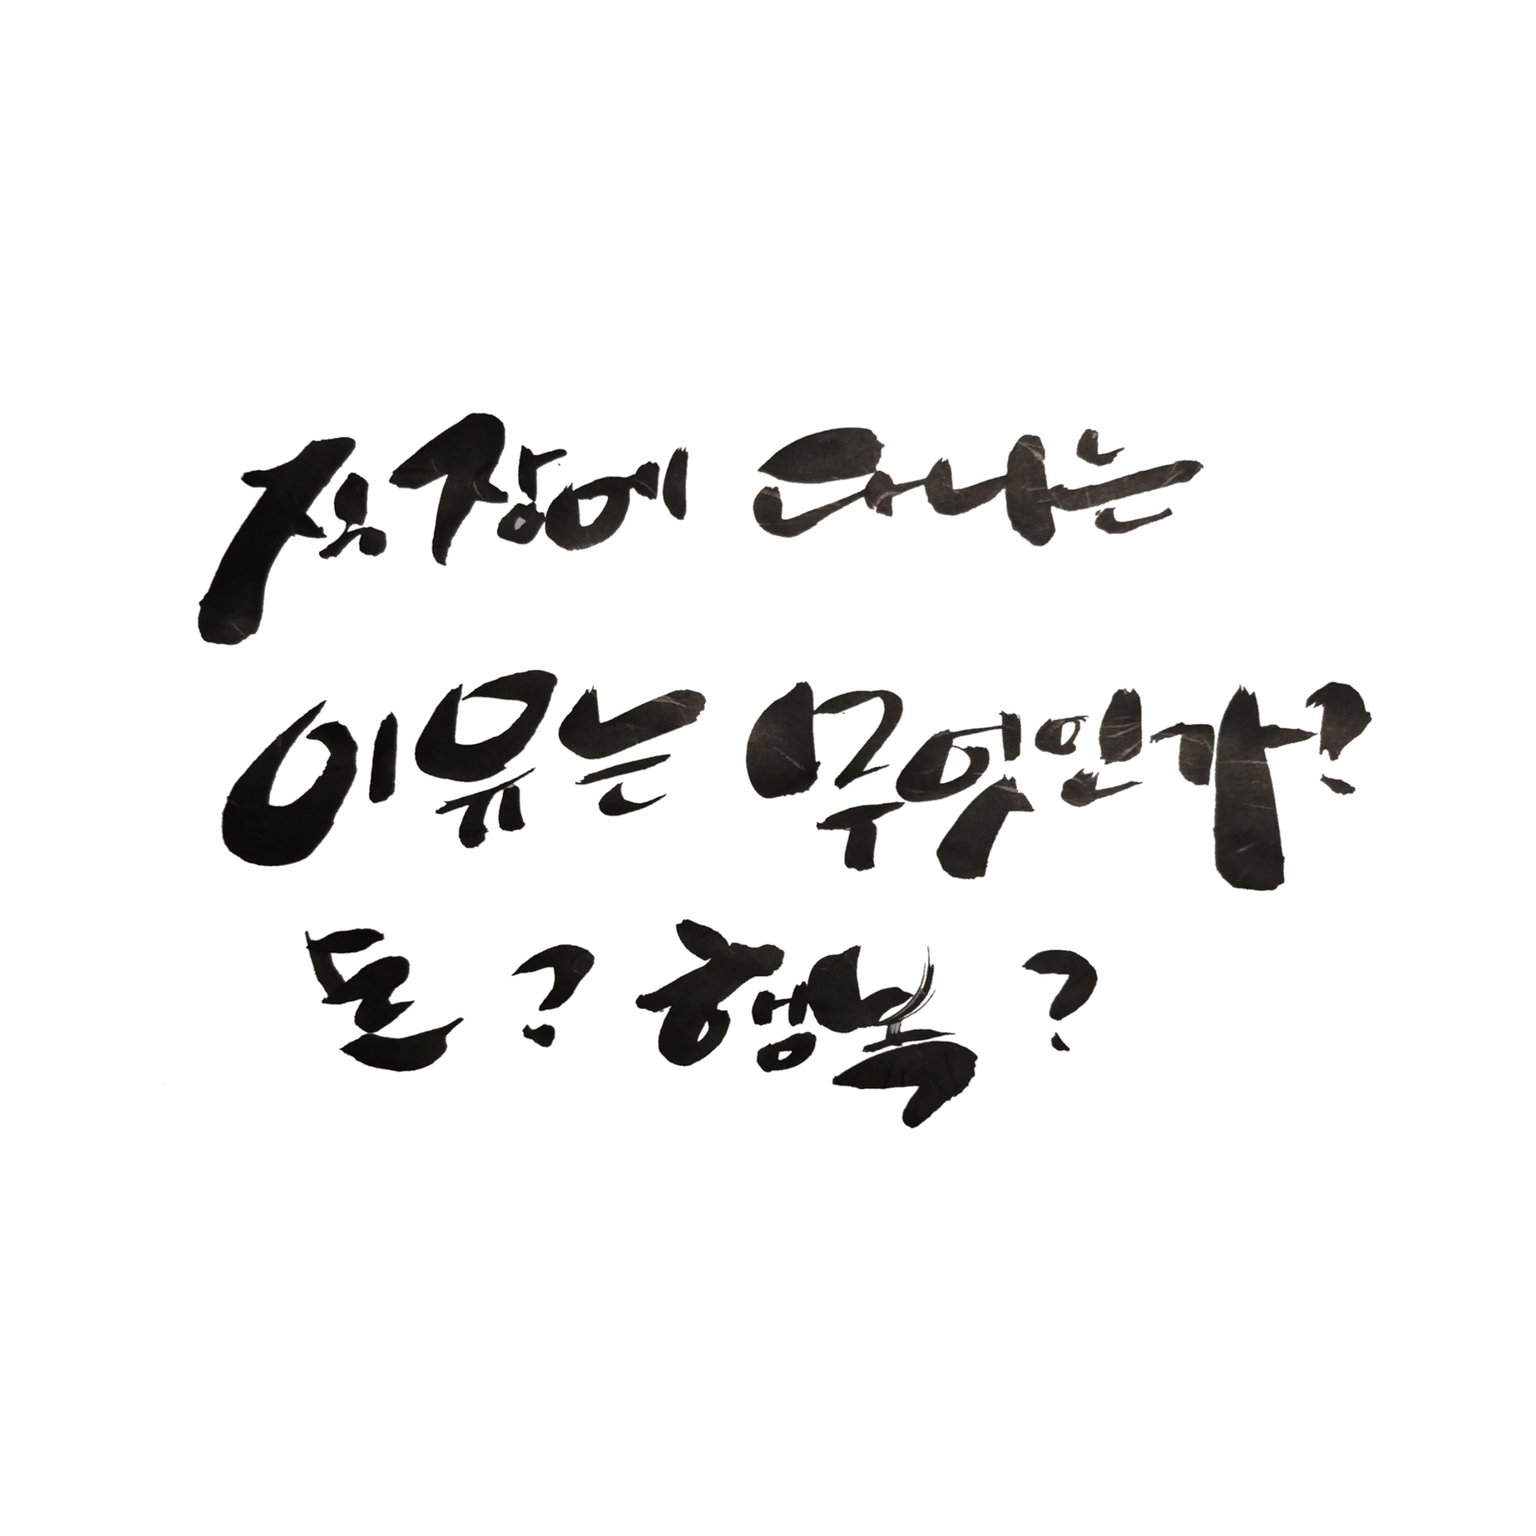 직장에 다니는
이유는 무엇인가?
돈? 행복?